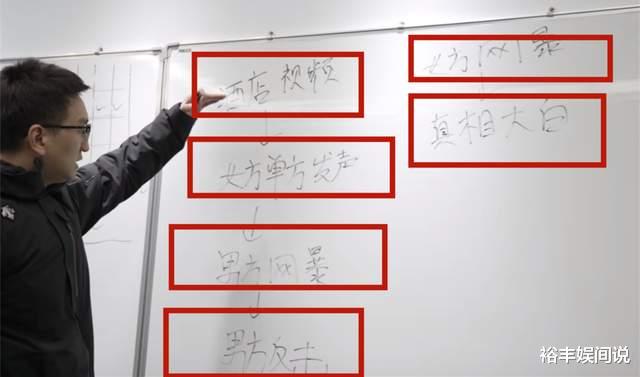 酒店视频
女方单方发声
男方网暴
男方反击
女方网暴
真相大白
裕丰娱间说